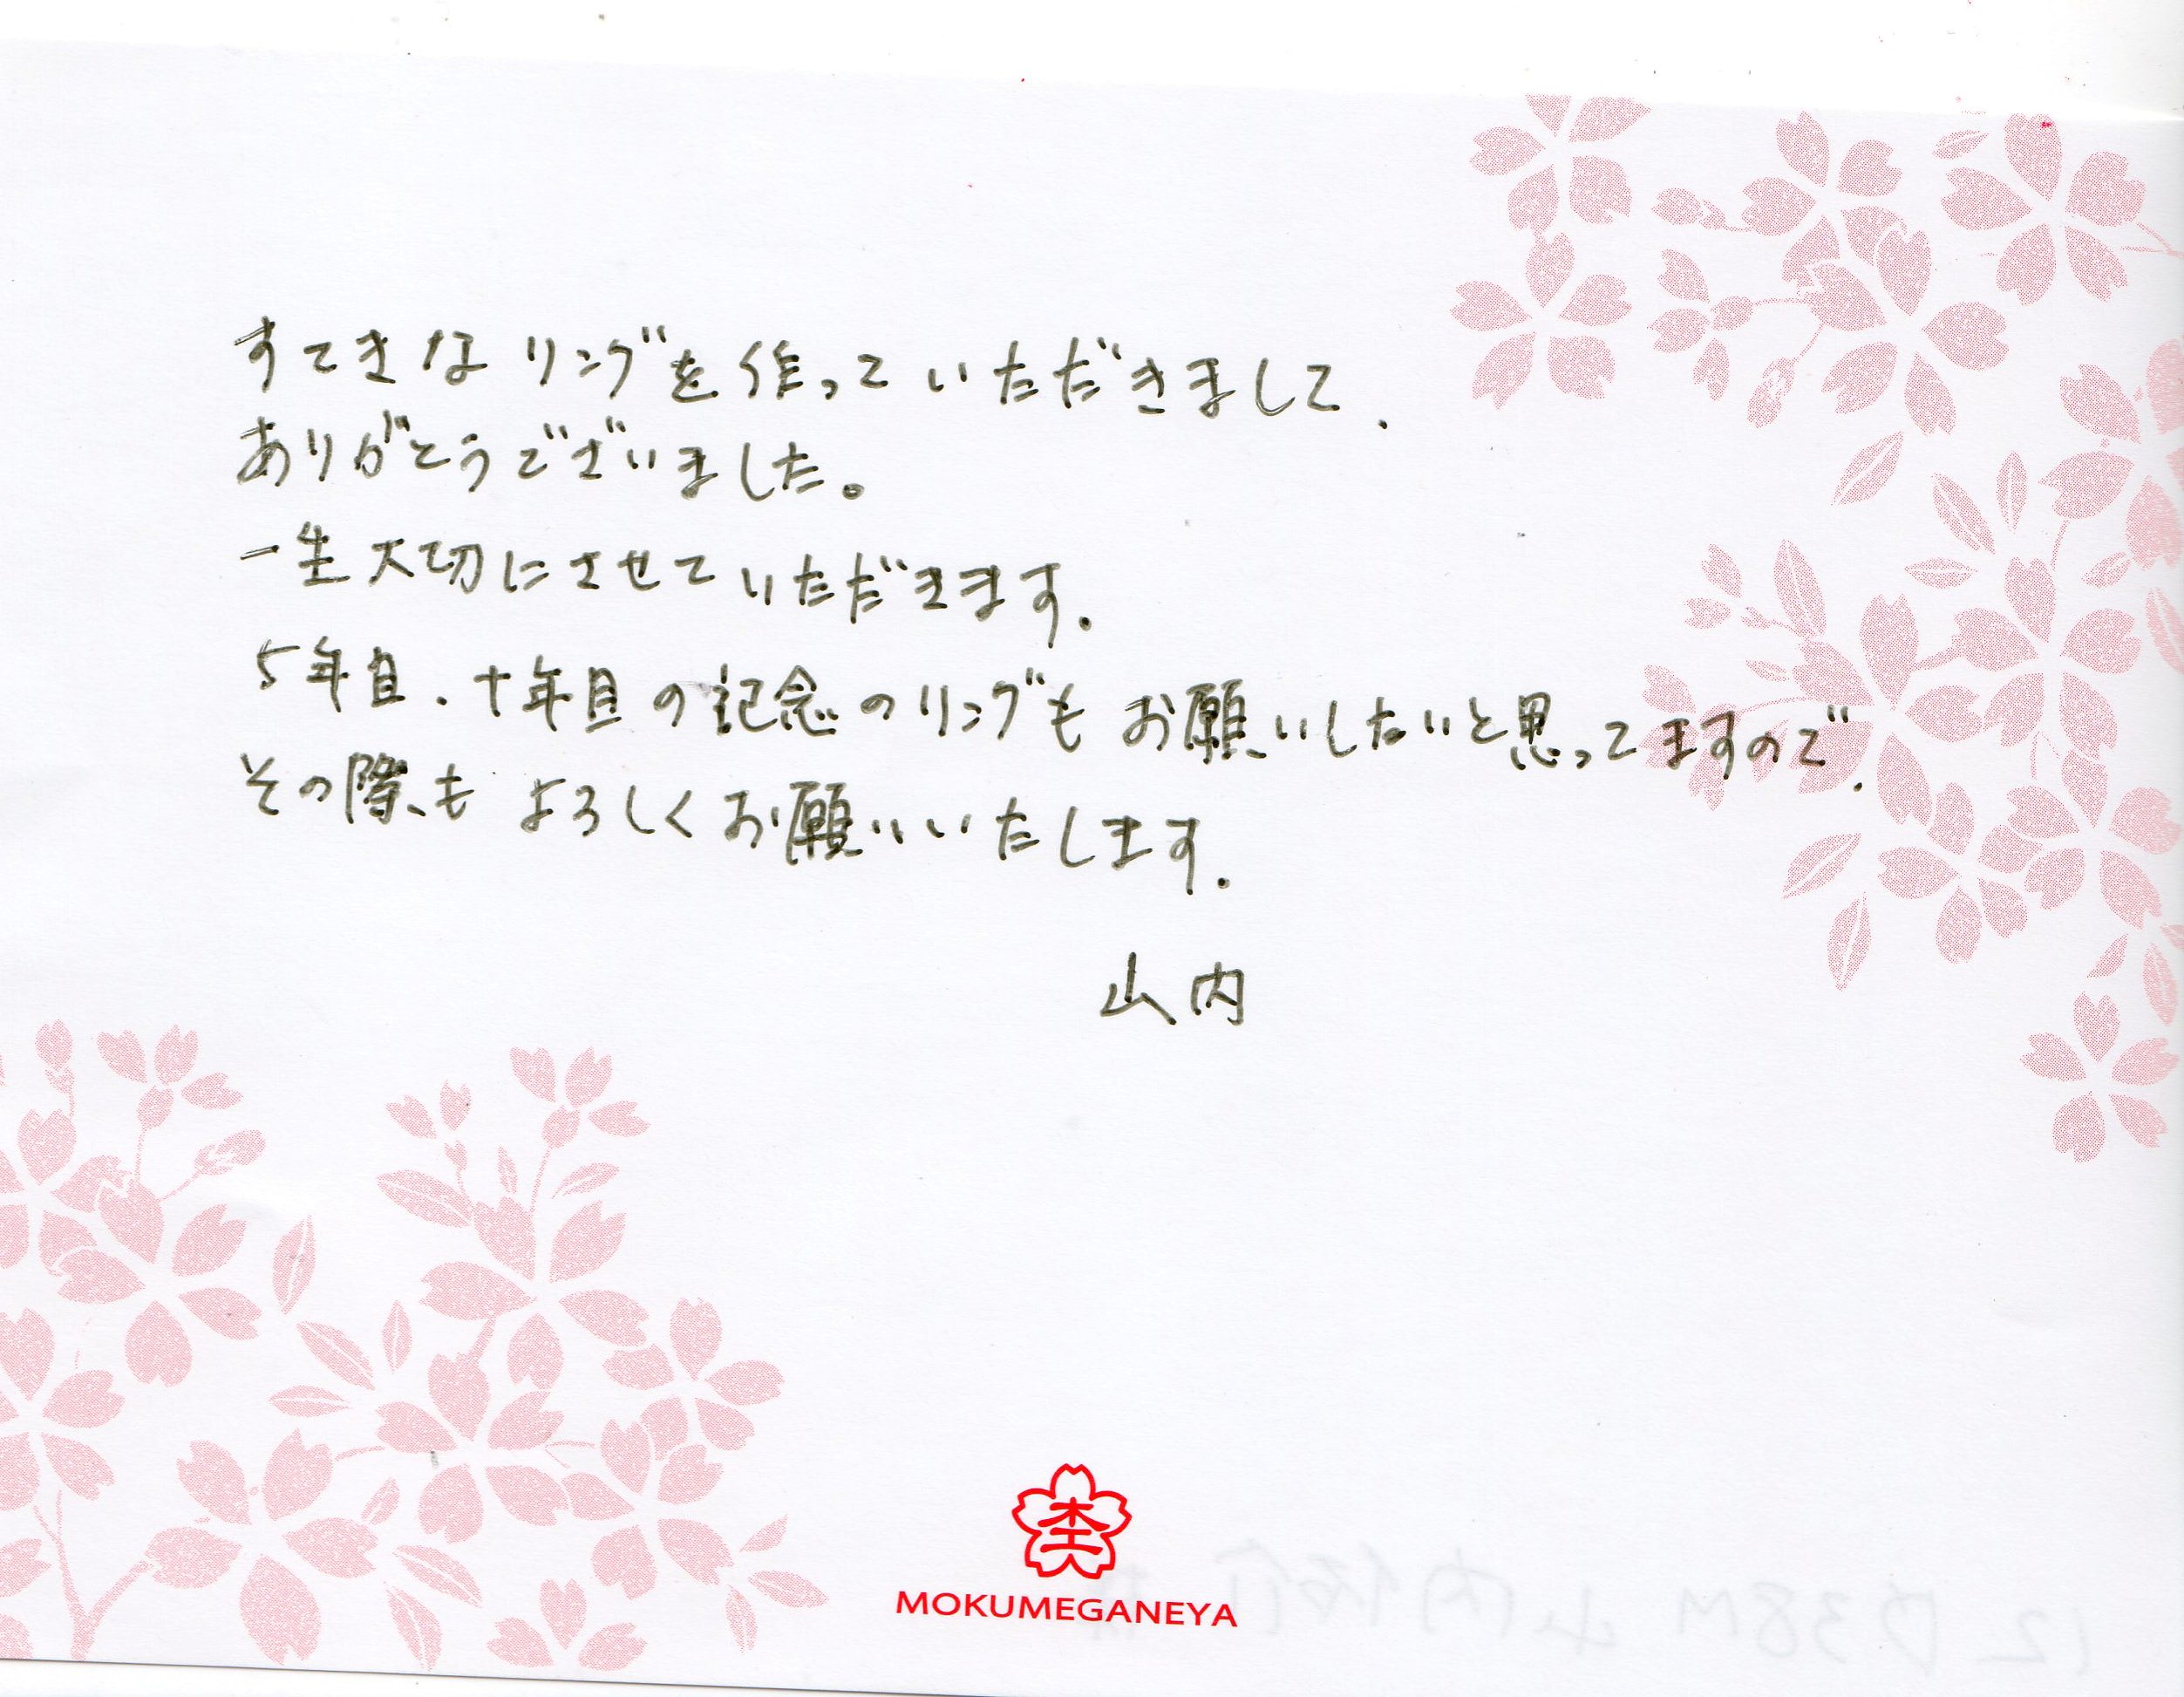 すてきなリングを作っていただきまして、
ありがとうございました。
一生大切にさせていただきます。
5年目、十年目の記念のリングもお願いしたいと思ってますので、
その際もよろしくお願いいたします。
山内
杢
MOKUMEGANEYA